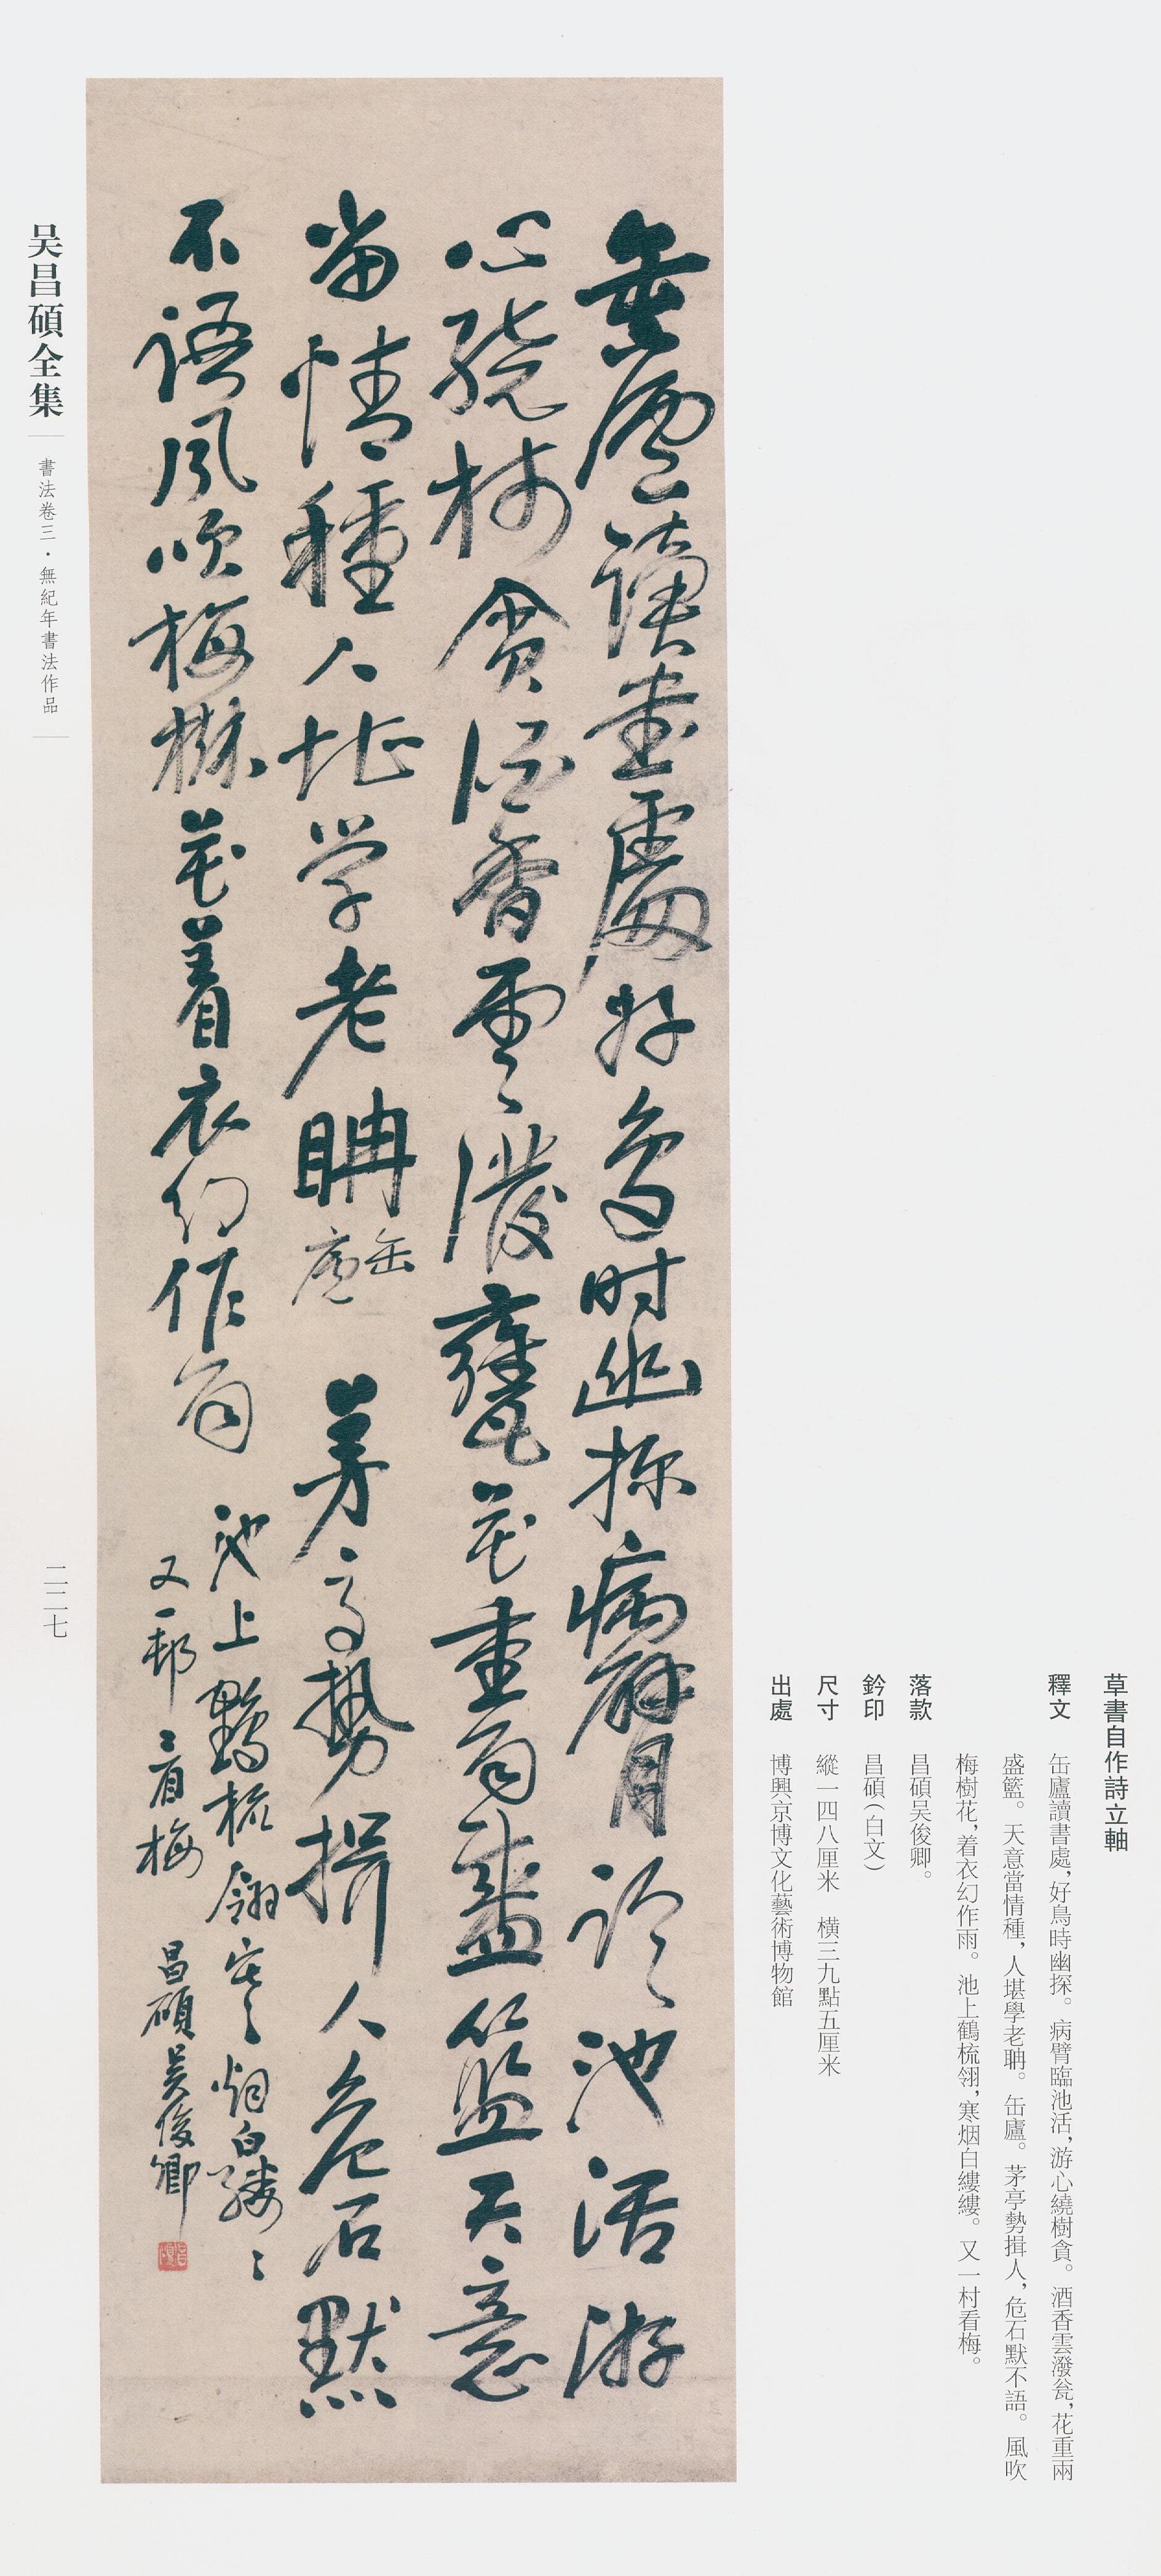 草書自作詩立軸
釋文 缶廬讀書處,好鳥時幽探。病臂臨池活,游心繞樹貪。酒香雲潑瓮,花重兩
盛籃。天意當情種,人堪學老聃。缶廬。茅亭勢揖人,危石默不語。風吹
梅樹花,着衣幻作雨。池上鶴梳翎,寒烟白縷縷。又一村看梅。
落款 昌碩吴俊卿。
鈐印 昌碩(白文)
尺寸 縱一四八厘米 橫三九點五厘米
出處 博興京博文化藝術博物館
缶廬讀書處好鳥時幽探病臂臨池活游
心繞樹貪酒香雲潑甕花重雨盛籃天意
當情種人堪學老聃 缶廬 茅亭勢揖人危石默
不語風吹梅樹花着衣幻作雨 池上鶴梳翎寒烟白縷〻
又一邨看梅 昌碩吴俊卿
吴昌碩全集
書法卷三·無紀年書法作品
二二七